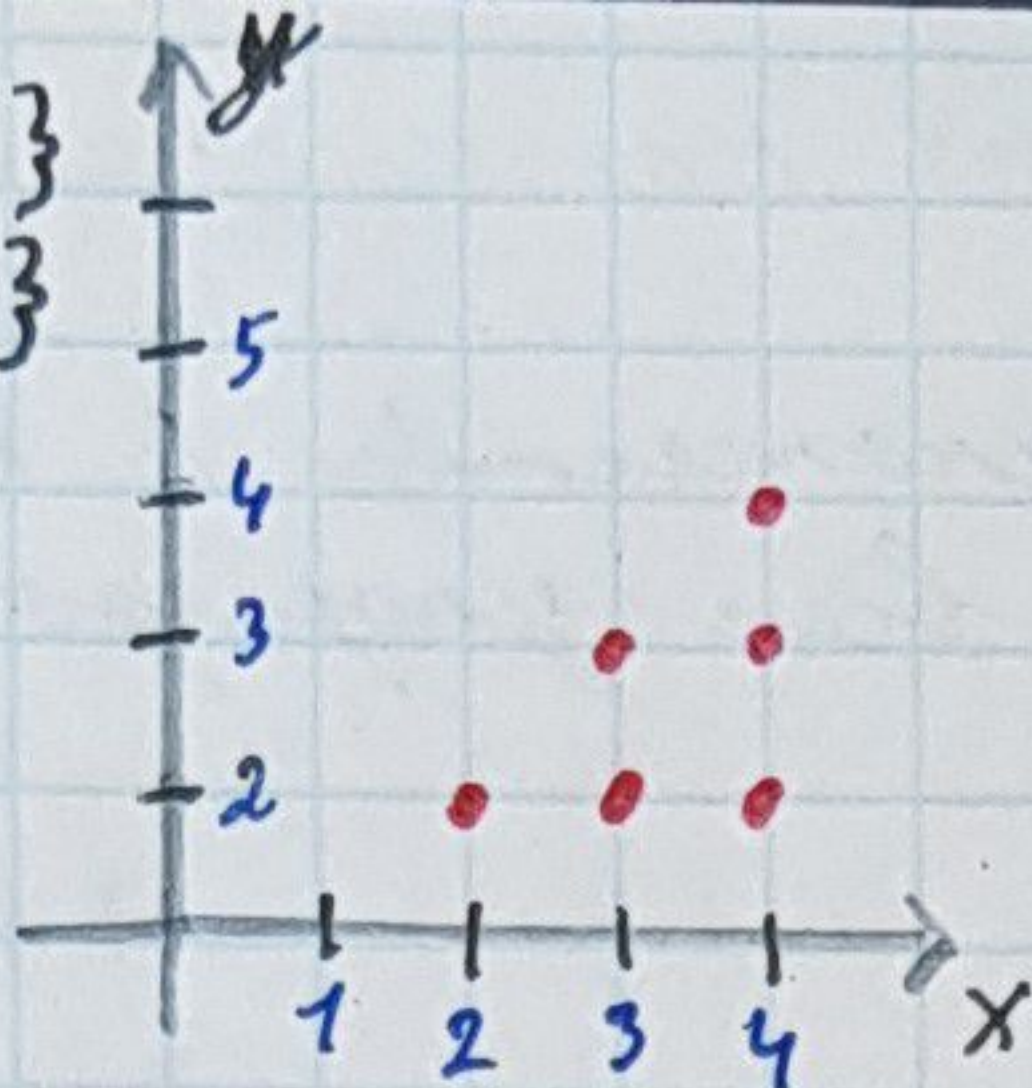 y
}
}
5
4
3
2
1 2 3 4
x